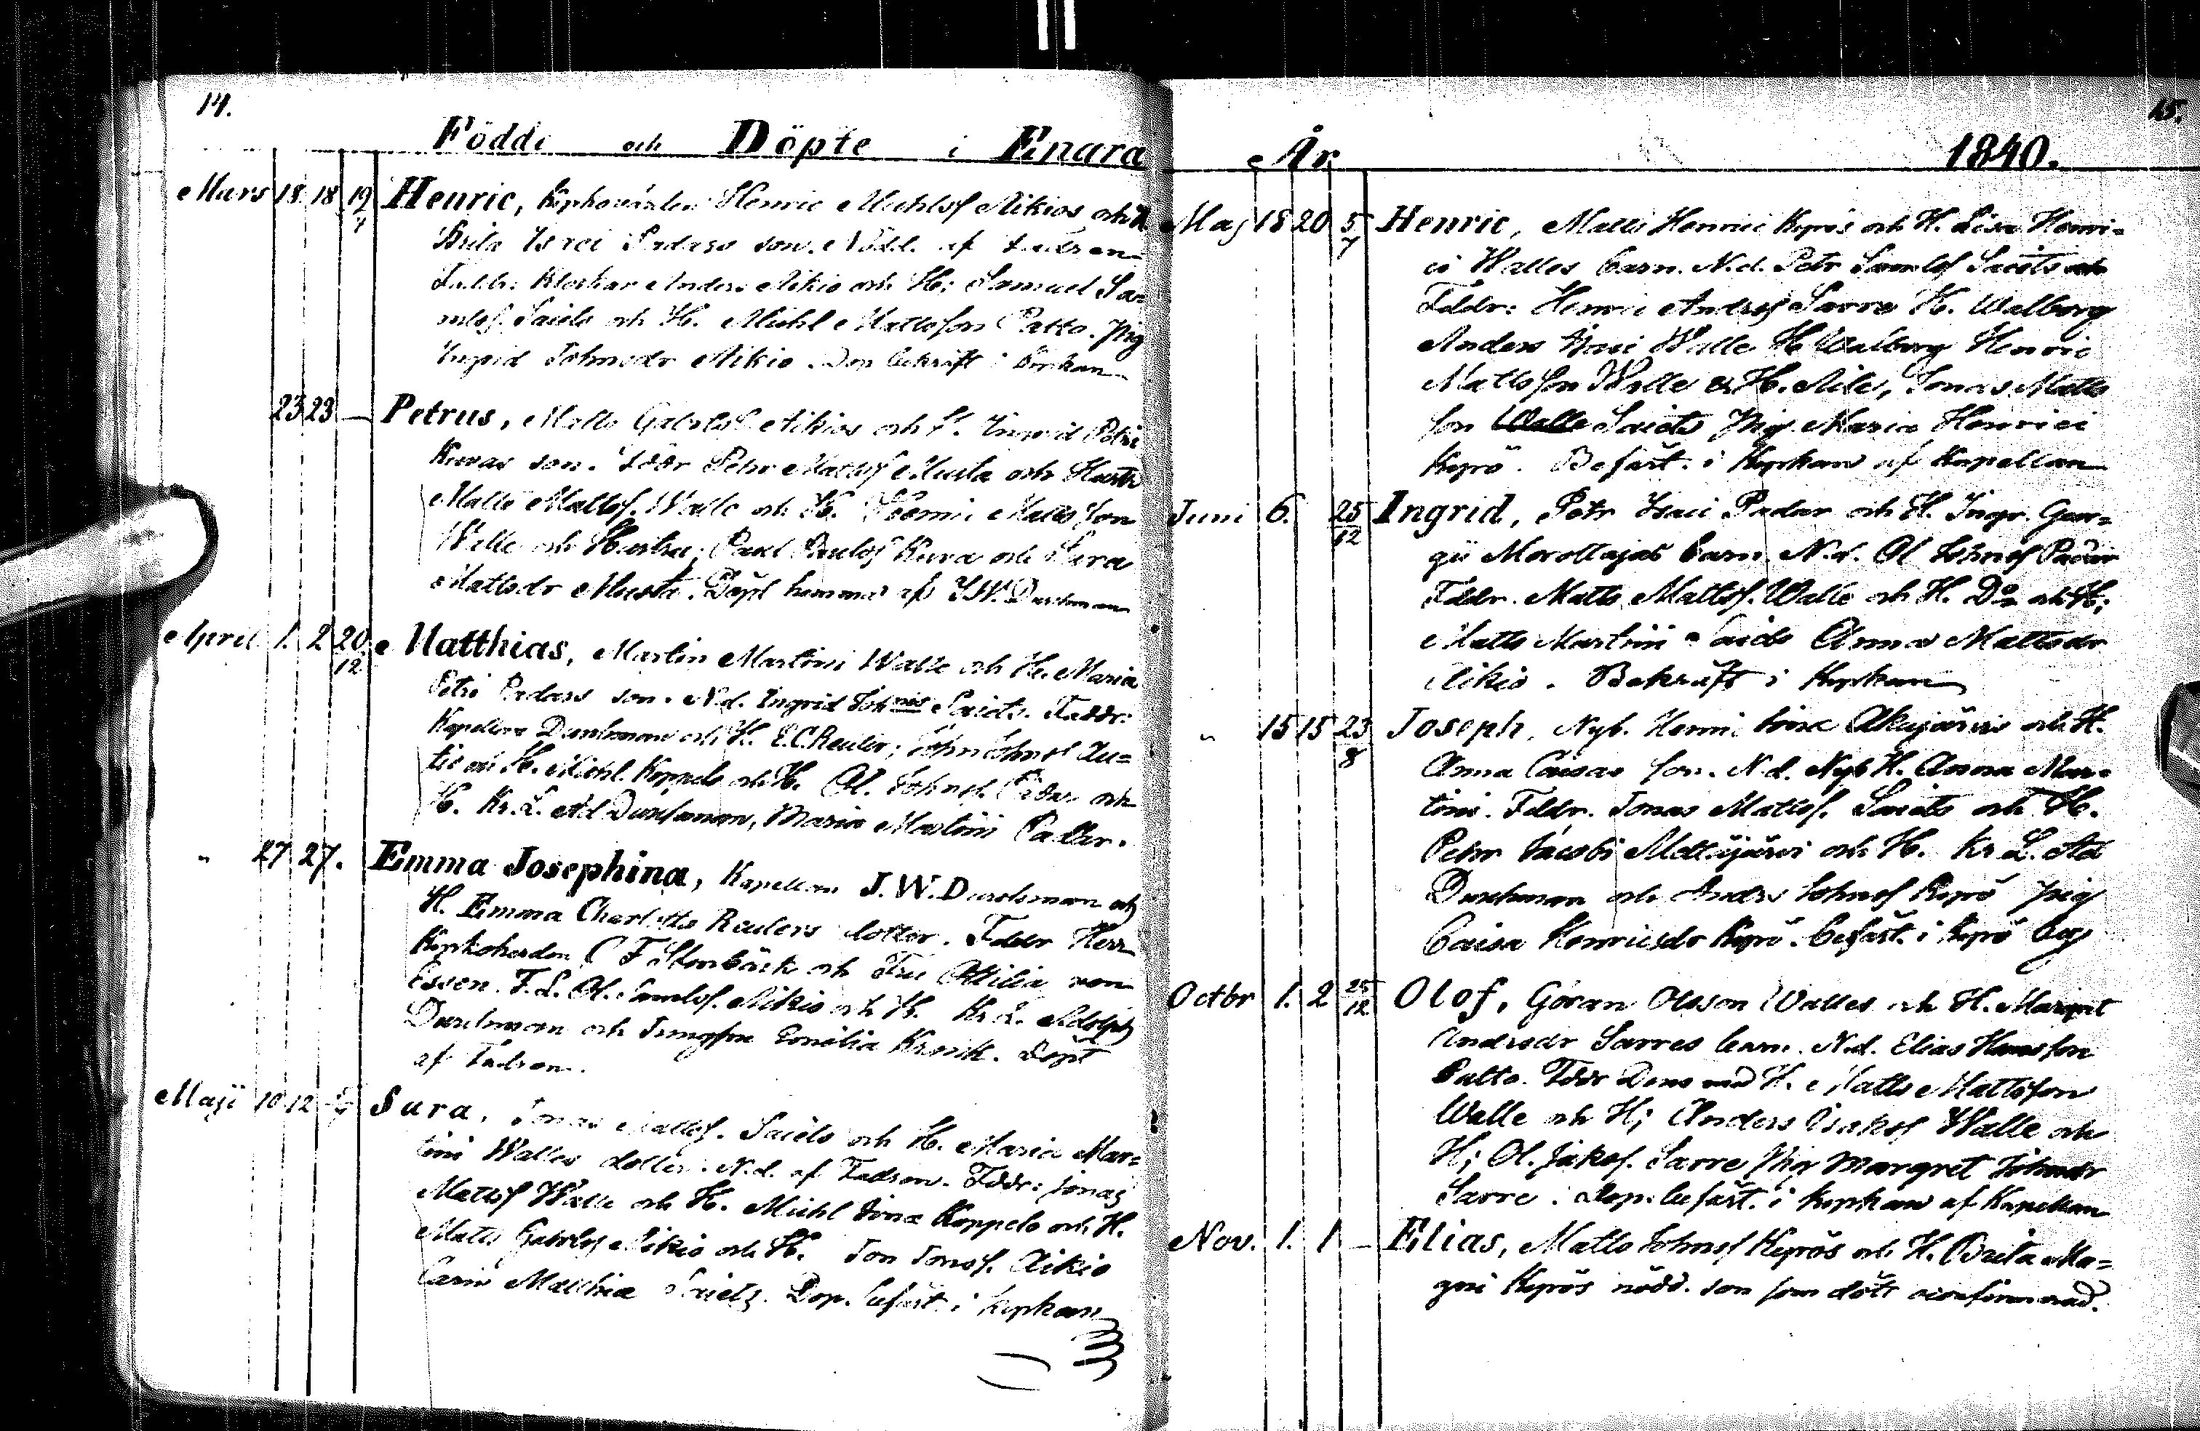 14.
Födde och Döpte i Enara
Mars 18 18 19 Henric, Henric Michlsf Aikios och H
son. Nödd. af Fadren
Faddr: Klockar Anders Aikio och H; Samuel Sa-
mlsf. Saiets och H. Michl Mattsson Palto. Pig
Ingrid Johnsdr Aikio. Dop bekräft i Kyrkan
23 23 — Petrus, Matts Gabrlsf. Aikios och H. Ingrid Petri
Kuvas son. Fddr Petr Mattsf Musta och Hustr
Matts Mattsf. Walle och H. Matts son
Walle och Hustru; Paul Paulsf Kuva och Sara
Mattsdr Musta. Döpt hemma af J.W. Durchman
April 1. 2 20/12 Matthias, Martin Martini Walle och H. Maria
Petri Padars son. N.d. Ingrid Johnis Saiets. Faddr:
Kapellan Durchman och H. E.C. Reuler; John Johnsf Au-
tio och H. Michl Koppelo och H. Ol. Johnsf. Padar och
H. Kr. L. Ad Durchman, Maria Martini Padar.
" 27 27. Emma Josephina, Kapellan J.W. Durchman och
H. Emma Charlotta Reulers dotter. Fddr Herr
Kyrkoherden C Fällenbäck och Fru Ottilia von
Essen. F.L. Ol. Samlsf. Aikio och H. Kr. L. Adolph
Durchman och Jungfru Emilia Kronk. Döpt
af Fadren.
Maji 10 12 Sara, Jonas Mattsf. Saiets och H. Maria Mar-
tini Walles dotter. N.d. af Fadren. Fddr: Jonas
Mattsf Walle och H. Michl Koppelo och H.
Matts Gabrlsf Aikio och H. Jon Jonsf. Aikio
Carin Matthiæ Saiets. Dop. befäst. i kyrkan
15.
År 1840.
Maj 18 20 5/7 Henric, Matts Henrici Kyrös och H. Lisa Henri-
ci Walles barn. N.d. Petr Samlsf Saiets och
Fddr: Henric Andrsf Sarre H. Walborg
Anders Walle H Walborg Henric
Mattsson Walle & H. Aile, Jonas Matts
son Saiets Pig. Maria Henrici
Kyrö. Befäst. i Kyrkan af Kapellan
Juni 6. 25/12 Ingrid, Petr Isaci Padar och H. Ingr. Geor-
gii Morottajas barn. N.d. Ol Johnsf Padar
Fddr. Matts Mattsf. Walle och H. Do och H;
Matts Martini Saiets Anna Mattsdr
Aikio. Bekräft i Kyrkan
" 15 15 23/8 Joseph, Nyb. Henric Akujärvis och H.
Anna Caisas son. N.d. Nyb H. Anna Mar-
tini. Fddr. Jonas Mattsf. Saiets och H.
Petr Jacobi Mettäjärvi och H. Kr. L. Ad
Durchman och Anders Johnsf Kyrö Pig
Caisa Henricsdr Kyrö. befäst. i Kyrö by
Octbr 1. 2 25/12 Olof, Göran Olsson Walles och H. Margret
Andrsdr Sarres barn. N.d. Elias Hansson
Palto. Fddr Dens med H. Matts Mattsson
Walle och H; Anders Isaksf Walle och
H; Ol. Jakosf. Sarre Pig Margret Johnsdr
Sarre. Dop. befäst. i kyrkan af Kapellan
Nov. 1. 1 — Elias, Matts Johnsf Kyrös och H. Breita Ma-
gni Kyrös nödd. son som dött oconfirmerad.